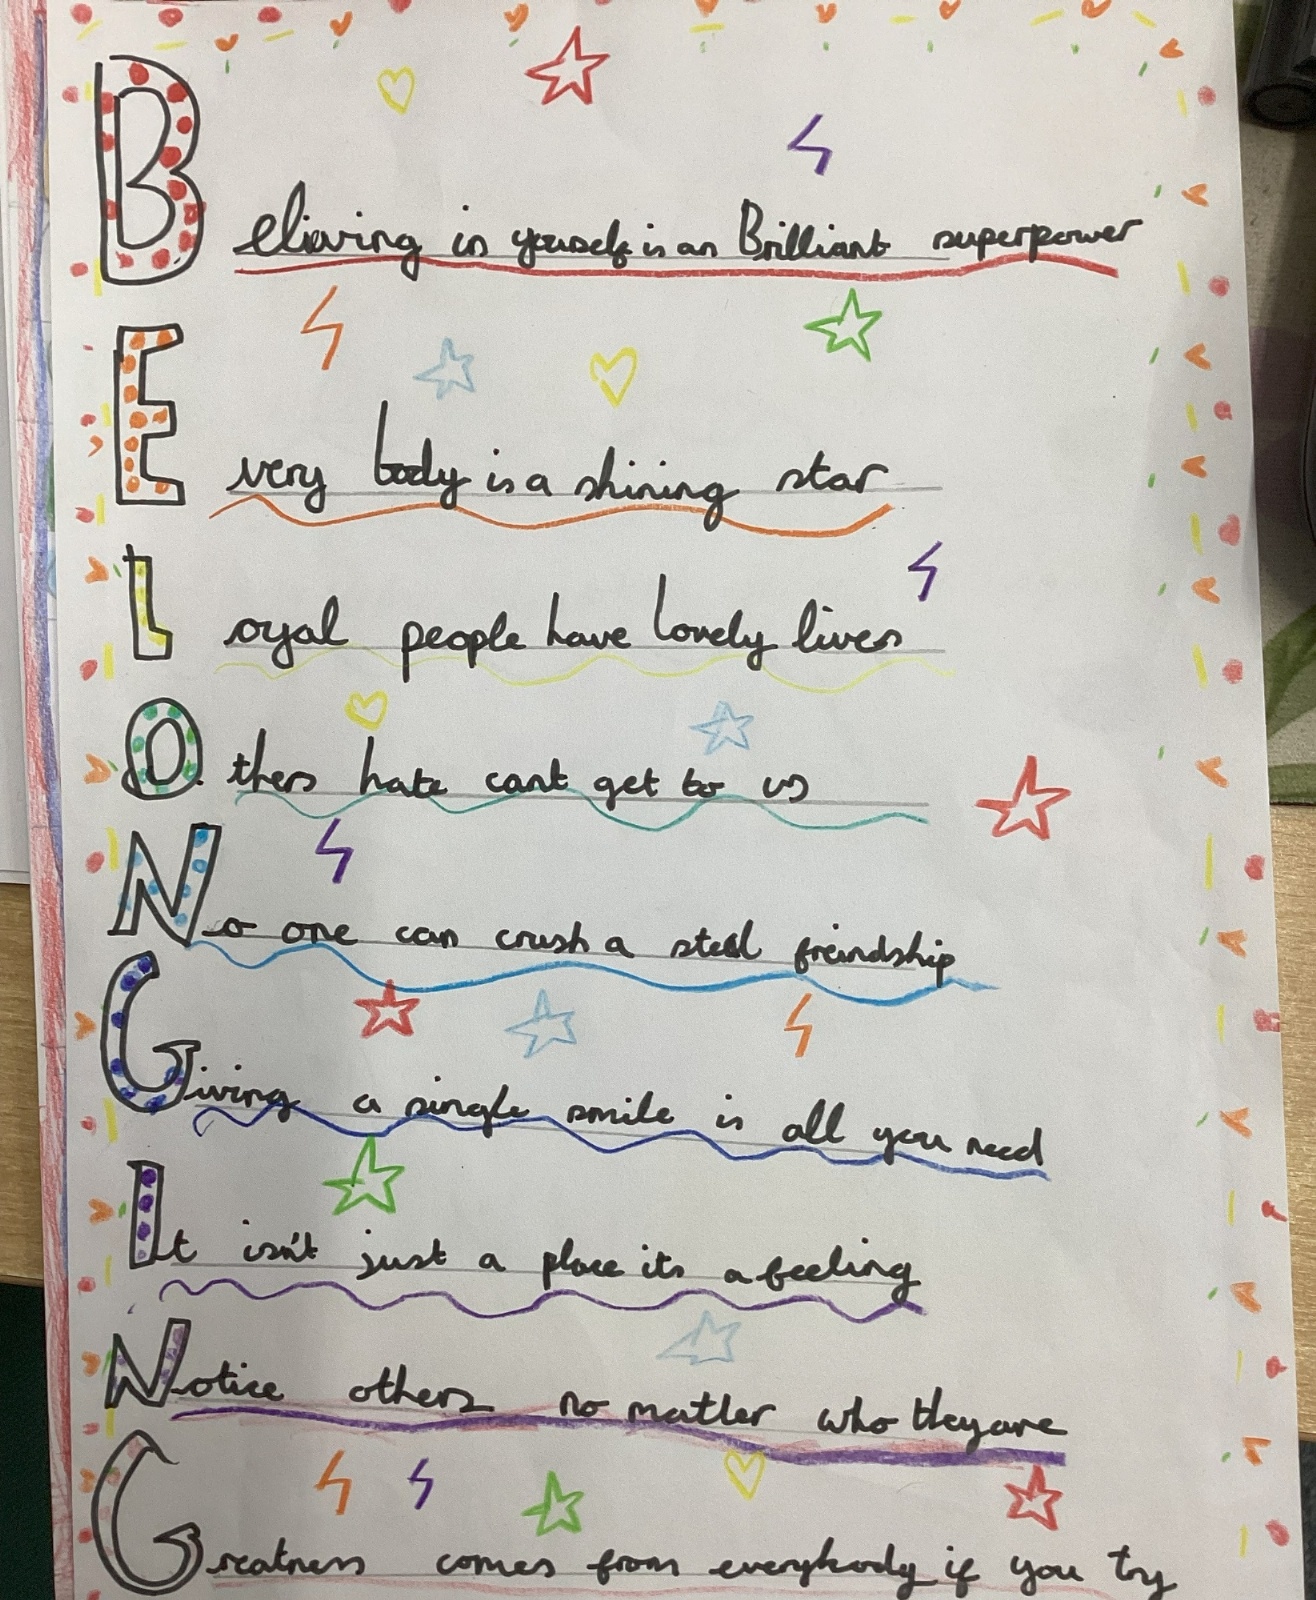 Believing in yourself is an Brilliant superpower
Every body is a shining star
Loyal people have lovely lives
Others hate cant get to us
No one can crush a steel freindship
Giving a single smile is all you need
It isn't just a place its a feeling
Notice others no matter who they are
Greatness comes from everybody if you try